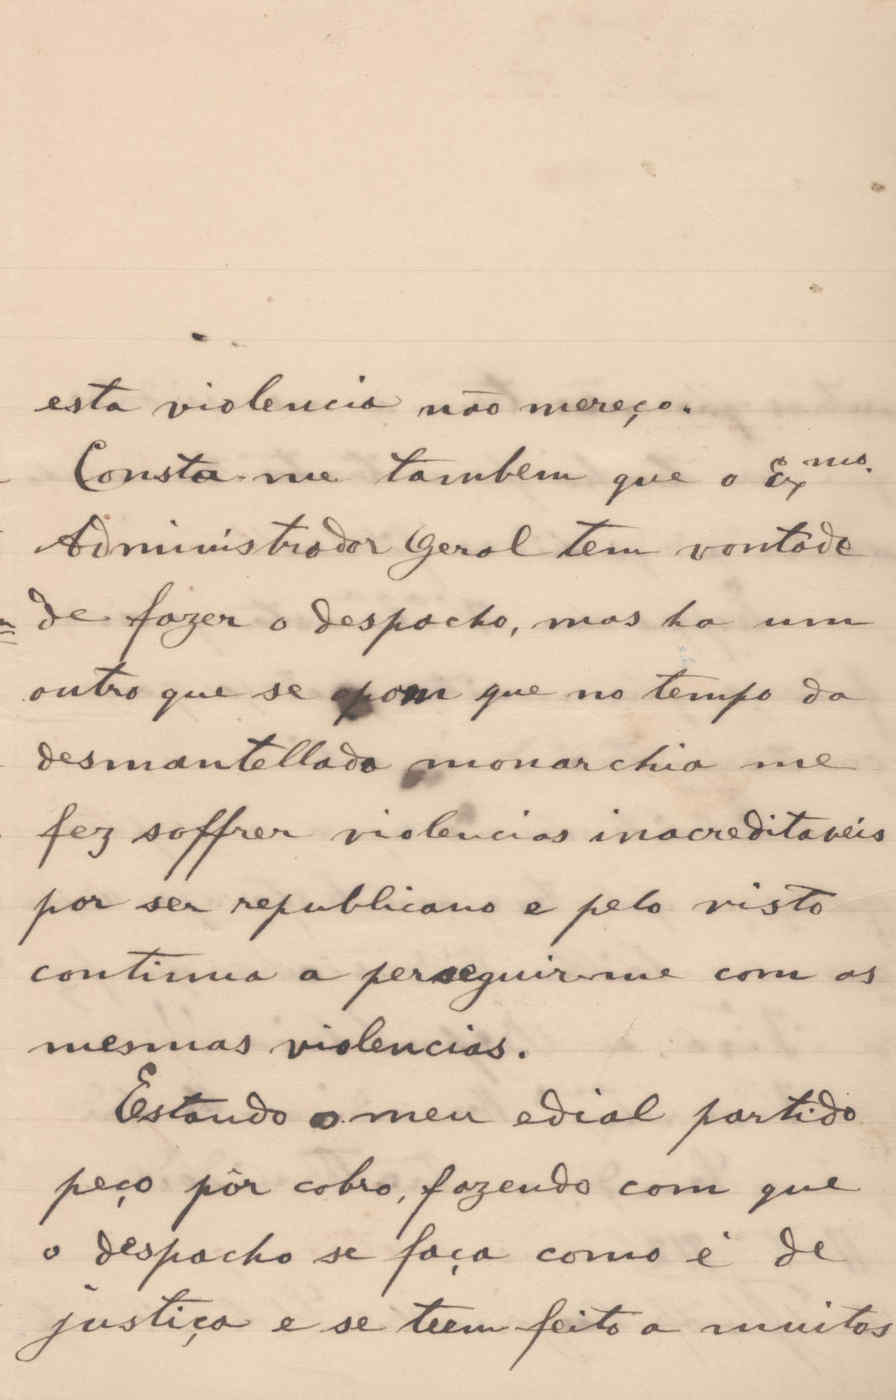 esta violencia não mereço.
Consta-me tambem que o Exmo.
Administrador Geral tem vontade
de fazer o despacho, mas ha um
outro que se opom que no tempo da
desmantellada monarchia me
fez soffrer violencias inacreditaveis
por ser republicano e pelo visto
continua a perseguir-me com as
mesmas violencias.
Estando o meu edial partido
peço pôr cobro, fazendo com que
o despacho se faça como é de
justiça e se teem feito a muitos